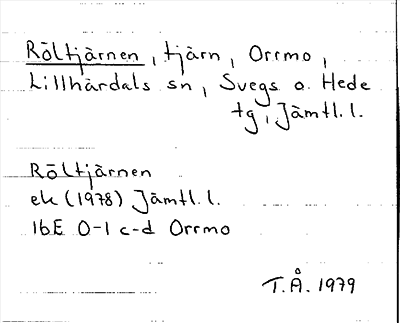 Röltjärnen, tjärn, Orrmo,
Lillhärdals sn, Svegs o. Hede
tg, Jämtl. l.
Röltjärnen
ek (1978) Jämtl. l.
16E 0-1 c-d Orrmo
T.Å. 1979